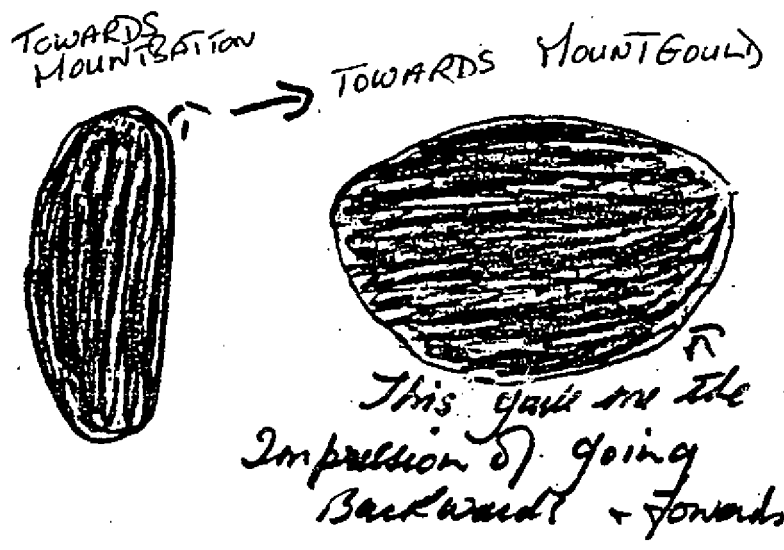 TOWARDS
MOUNTBATTON
TOWARDS MOUNTGOULD
This gave me the
Impression of going
Backwards + Fowards